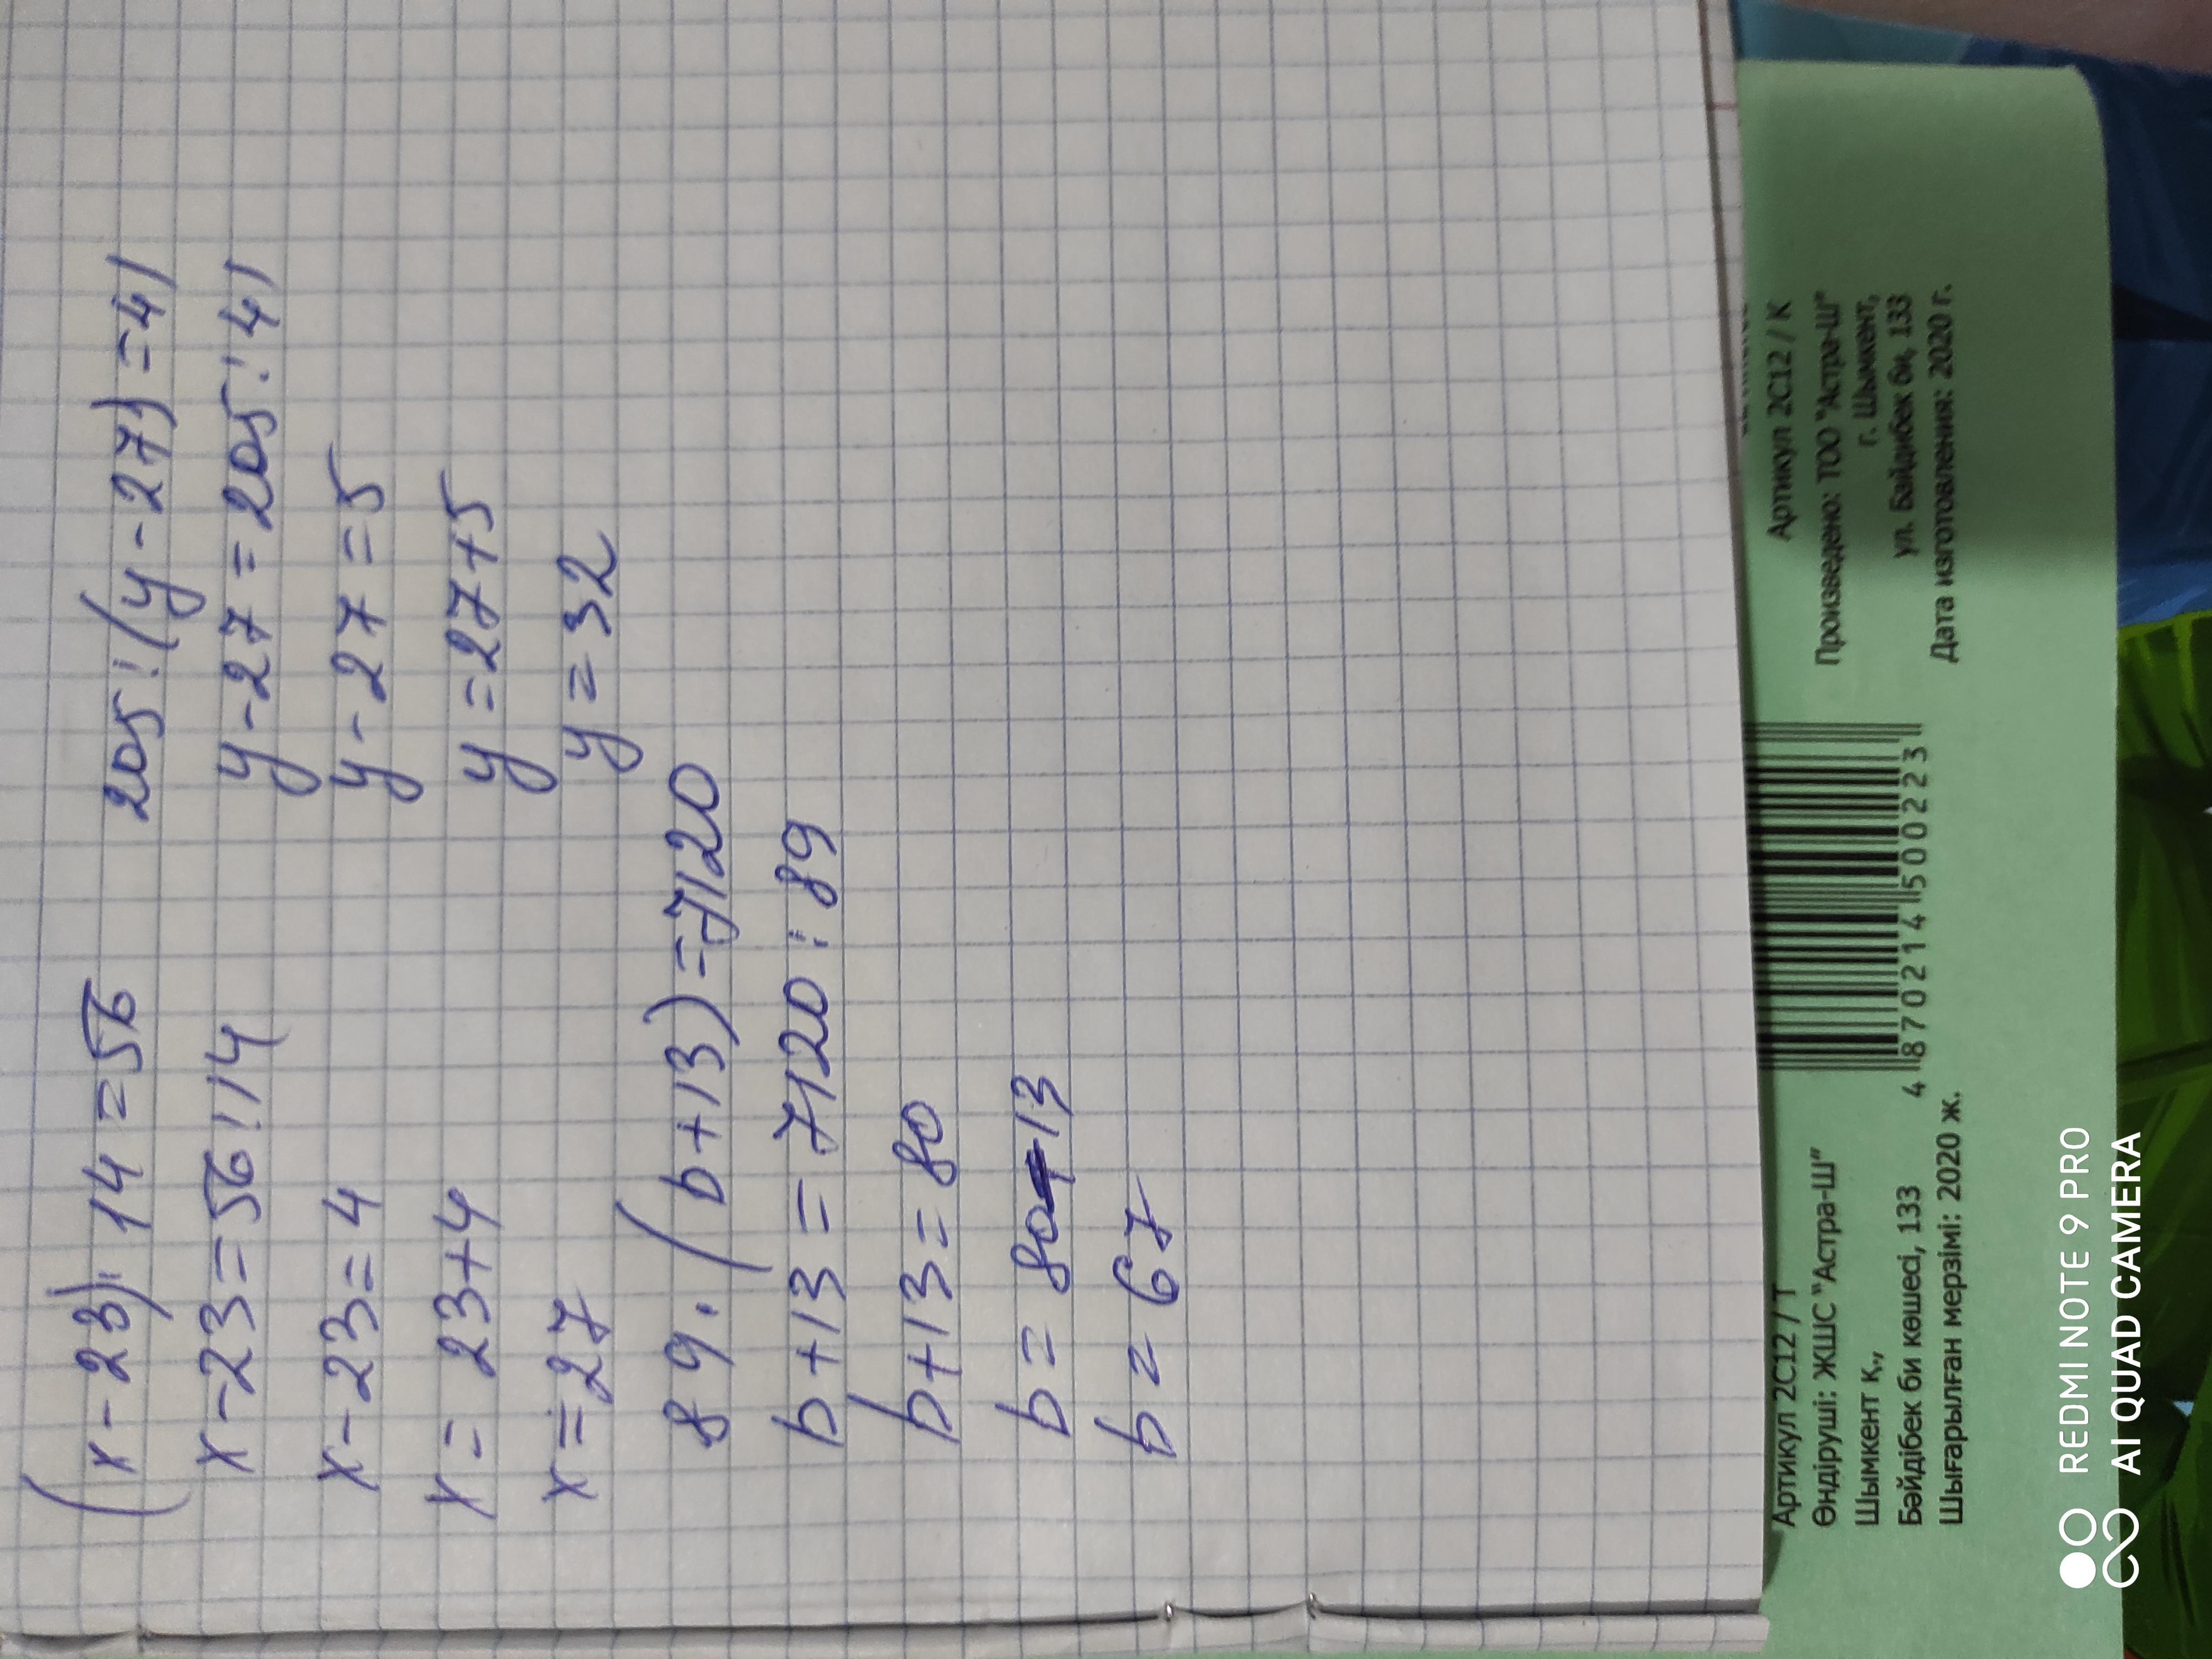 (x-23)·14=56
x-23=56:14
x-23=4
x=23+4
x=27
205:(y-27)=41
y-27=205:41
y-27=5
y=27+5
y=32
89·(b+13)=7120
b+13=7120:89
b+13=80
b=80-13
b=67
Артикул 2С12 / Т
Өндіруші: ЖШС "Астра-Ш"
Шымкент қ.,
Бәйдібек би көшесі, 133
Шығарылған мерзімі: 2020 ж.
4 870214 500223
Артикул 2С12 / К
Произведено: ТОО "Астра-Ш"
г. Шымкент,
ул. Байдибек би, 133
Дата изготовления: 2020 г.
REDMI NOTE 9 PRO
AI QUAD CAMERA